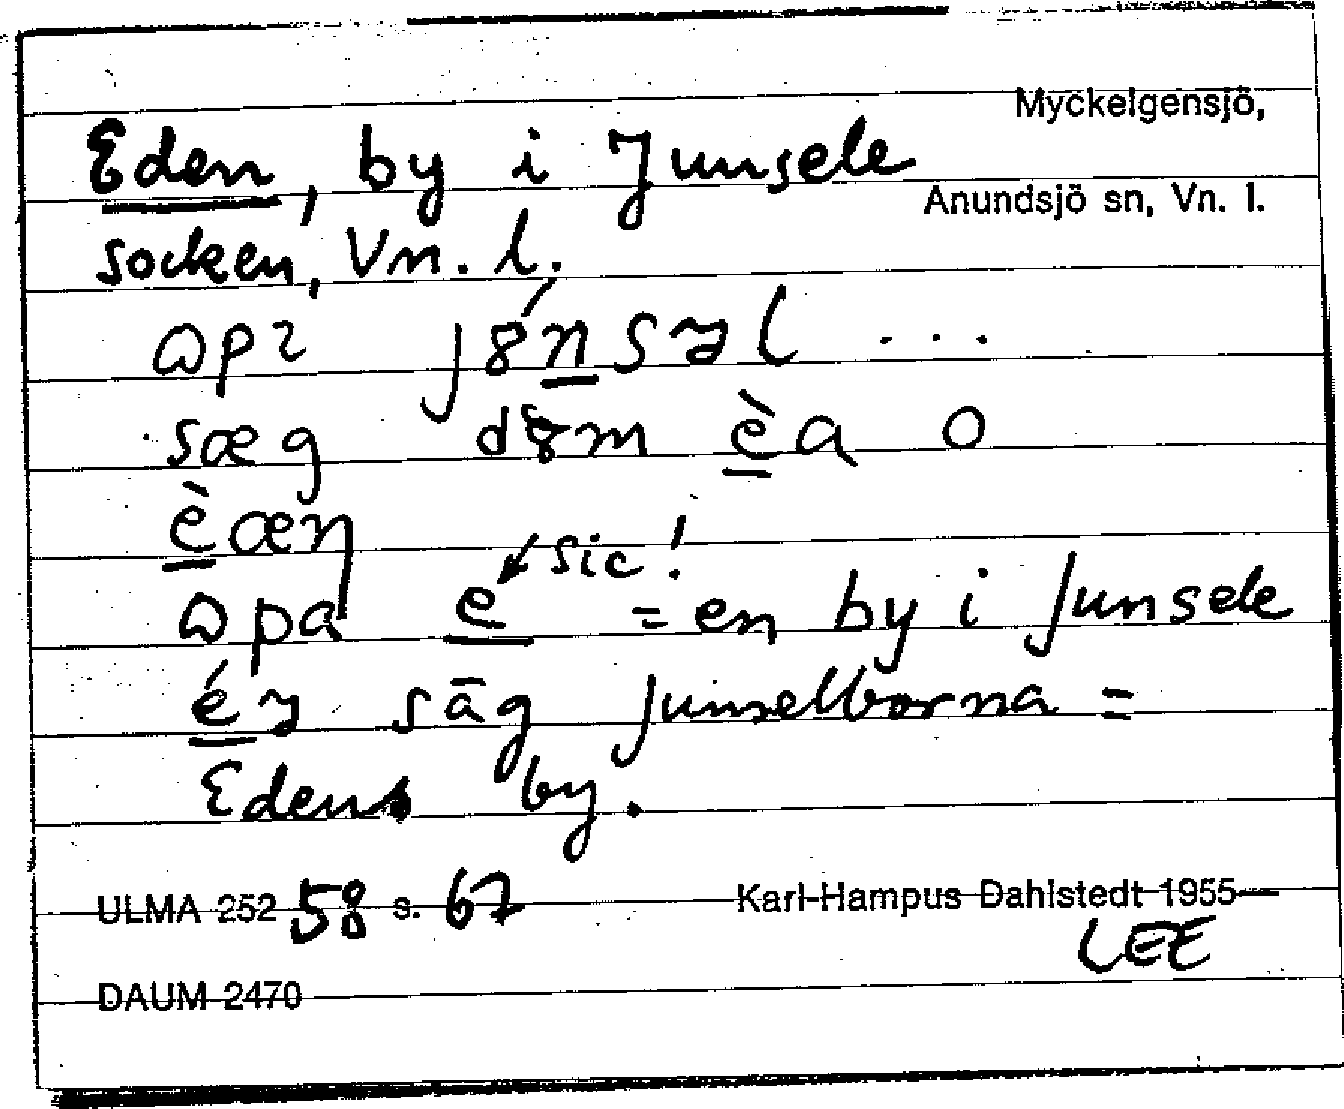 Myckelgensjö,
Eden, by i Junsele
Anundsjö sn, Vn. l.
socken, Vn. l.
sæg dm èa o
èæn
ɷpa e = en by i Junsele
sic!
säg Junselborna =
Edens by.
ULMA 252 58 s. 67 Karl-Hampus Dahlstedt 1955
LEE
DAUM 2470